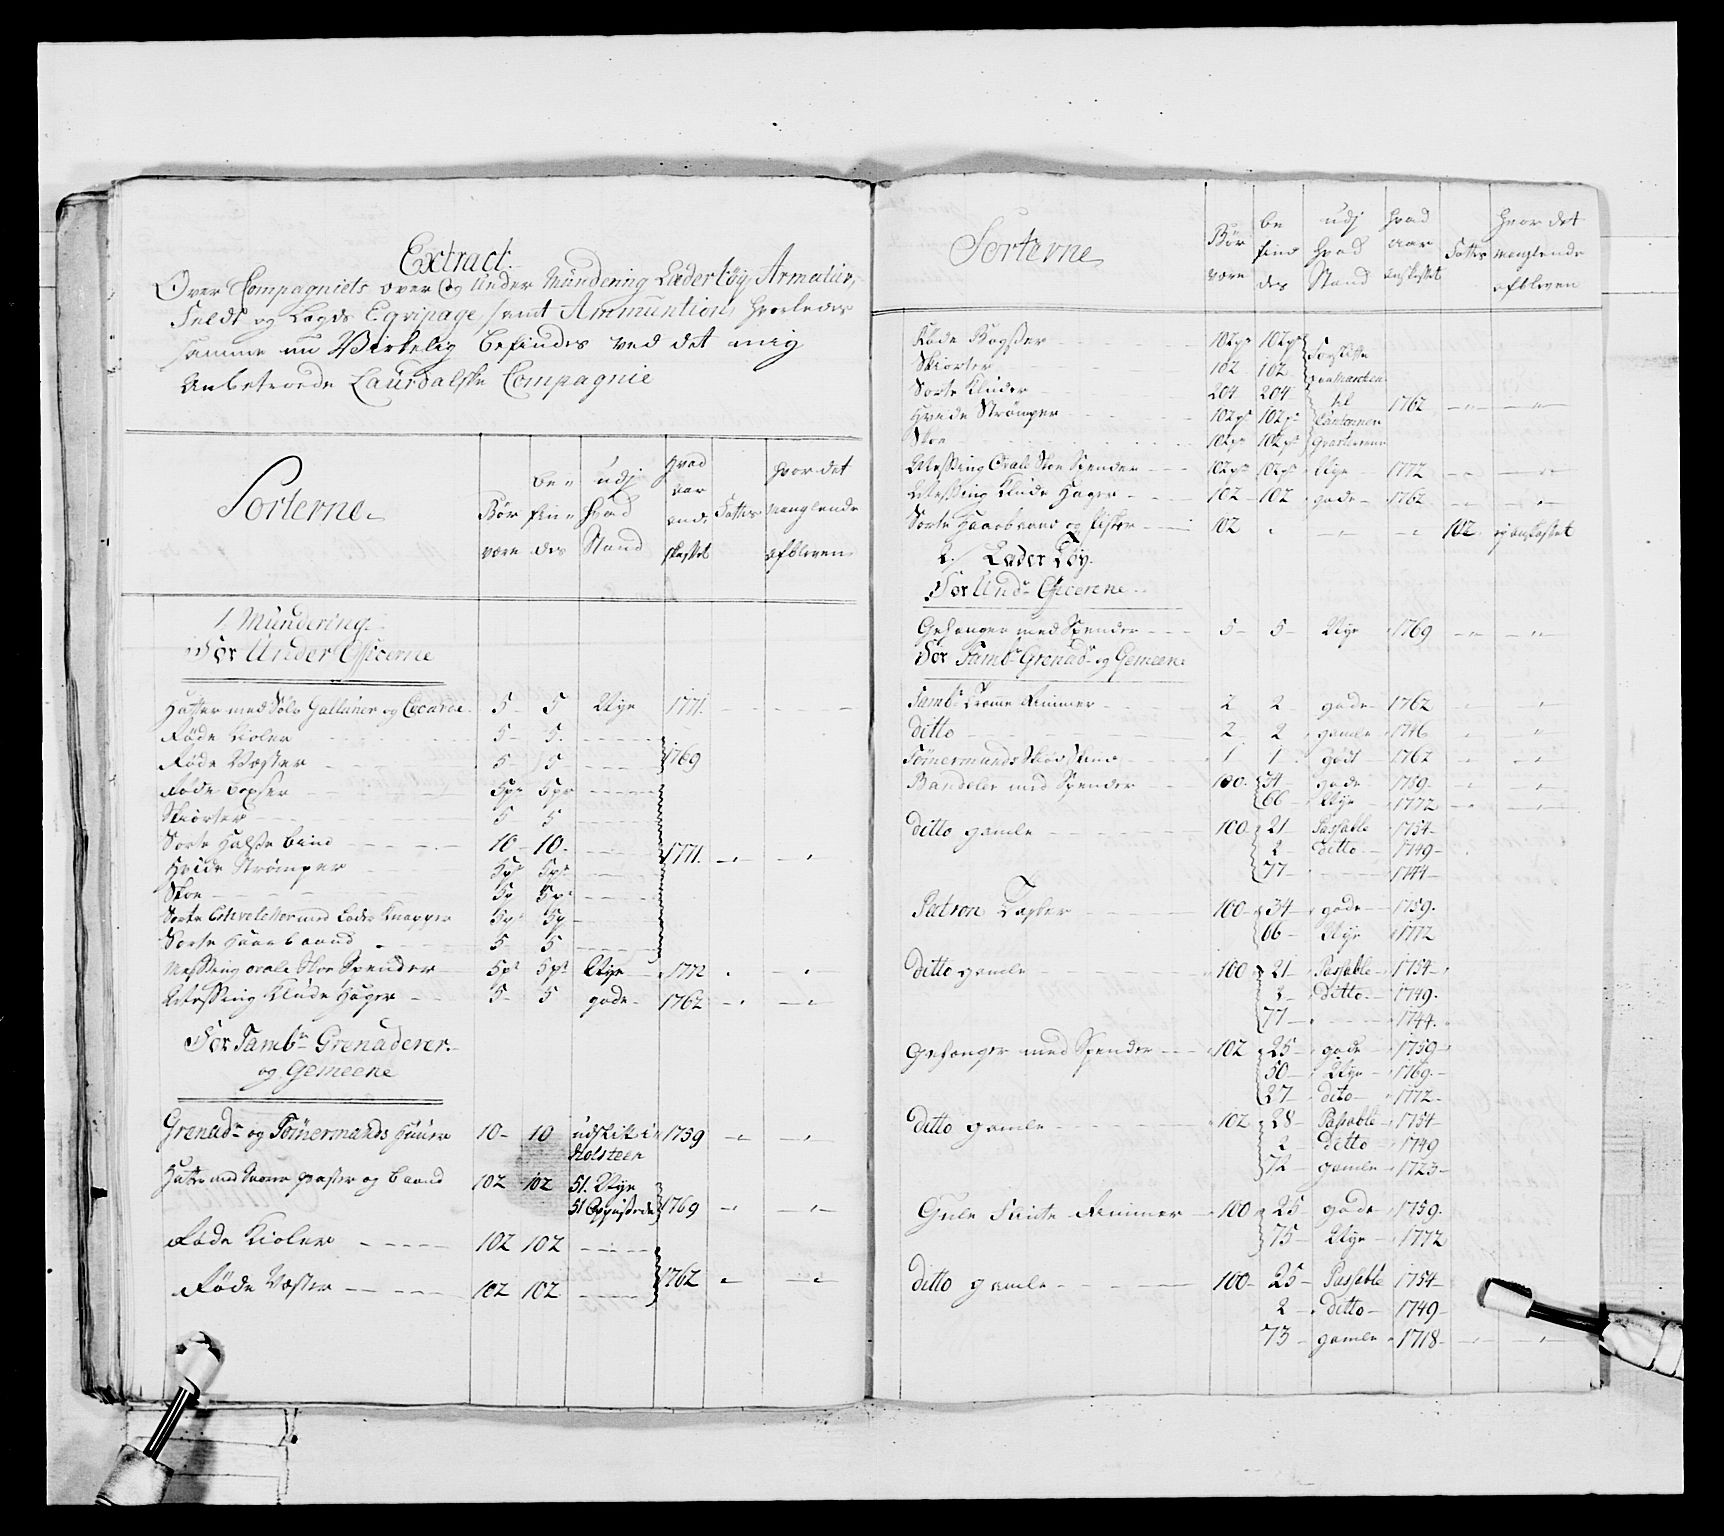 Extract
Over Compagniets over og Under Mundering Lædertöy, Armatur,
Feldt og Lægds Eqvipage, samt Ammuntion, hvorledes
samme nu Virkelig befindes ved det mig
Anbetroede Laurdalske Compagnie
Sorterne
Bør være
be- fin- des
udj hvad Stand
hvad aar ands- skaffet
Fattes
hvor det manglende afbleven
1. Mundering
For Under Officerne
Hatter med Sølv Galluner og Cocarde 5 5 Nye 1771
Røde Kioler 5 5
Røde Væster 5 5 1769
Røde Boxser 5pr 5pr
Skiorter 5 5
Sorte Halse Bind 10 10
Hvide Strømper 5pr 5pr 1771
Skoe 5p 5pr
Sorte Estiveletter med Læder Knapper 5pr 5p
Sorte Haarbaand 5 5
Messing ovale Skoe Spender 5pr 5pr Nye 1772
Messing Klude Hager 5 5 gode 1762
For Tambr Grenaderer
og Gemeene
Grenadr og Tømermands Huuer 10 10 udslidt i 1759
Holsteen
Hatte med Snorer Qvaster og Baand 102 102 51. Nye
51 Oppudsede 1769
Røde Kioler 102 102
Røde Væster 102 102 1762
Sorterne
Bør være
be find des
udj hvad Stand
hvad aar anskaffet
Fattes
hvor det manglende afbleven
Røde Boxser 102pr 102pr
Skiorter 102 102
Sorte Klude 204 204 til
Hvide Strømper 102pr 102pr Cantonner 1762
Skoe 102pr 102pr Qvarterene
Messing Ovale Skoe Spender 102pr 102pr Nye 1772
Messing Klude Hager 102 102 gode 1762
Sorte Haarbaand og Pisker 102 102 ej anskaffet
2. Læder Tøy
For Undr Officerene
Gehænger med Spender 5 5 Nye 1769
For Tambr Grenadr og Gemeene
Tambr Tromme Rimmer 2 2 gode 1762
ditto 2 2 gamle 1746
Tømermands Skiødskind 1 1 godt 1762
Bandeler med Spender 100 34 gode 1759
66 Nye 1772
ditto gamle 100 21 Passable 1754
2 ditto 1749
77 1744
Patron Tasker 100 34 gode 1759
66 Nye 1772
ditto gamle 100 21 Passable 1754
2 ditto 1749
77 1744
Gehænger med Spender 102 25 gode 1759
50 Nye 1769
27 dito 1772
ditto gamle 102 28 Passable 1754
2 ditto 1749
72 gamle 1723
Gule Flinte Rimmer 100 25 gode 1759
75 Nye 1772
ditto gamle 100 25 Passable 1754
2 ditto 1749
73 gamle 1718